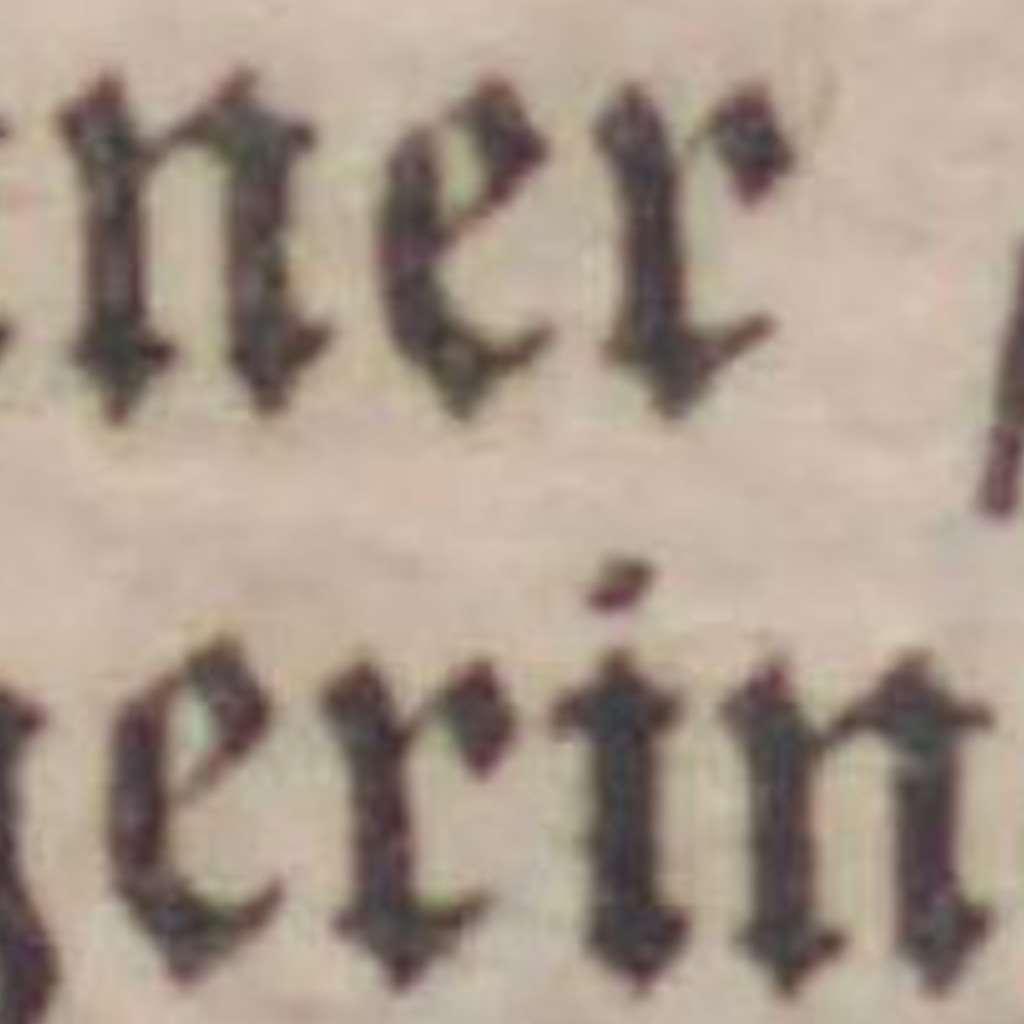 ner
gerin